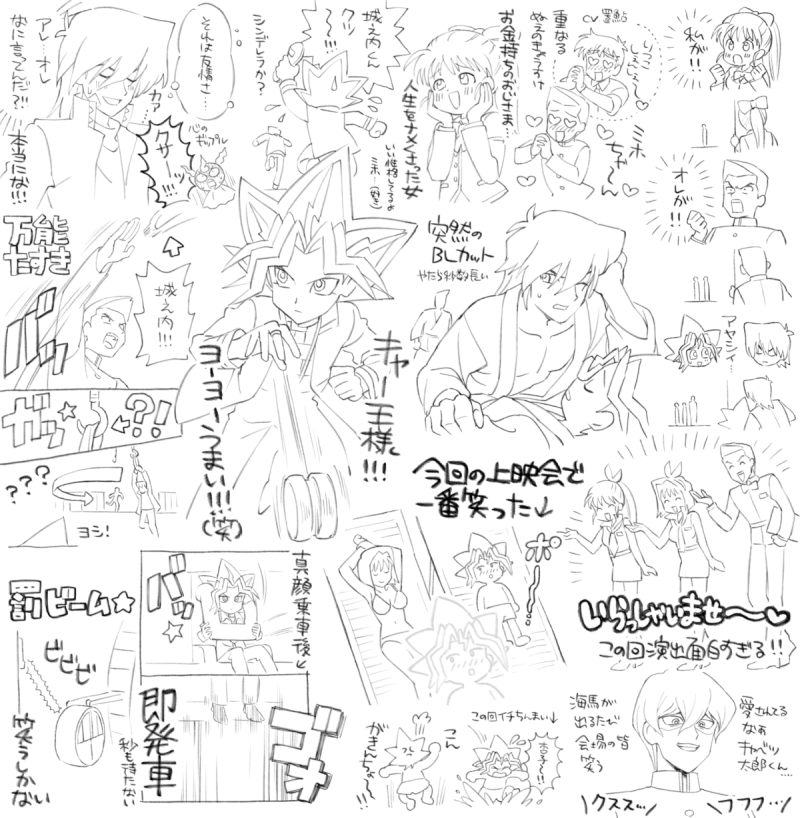 私が!!
CV 置鮎
いっこしぇしぇ～い
重なる
ぬえのきょうすけ
お金持ちのおじさま…
人生をナメくさった女
ミホ
ちゃ～ん
城之内くん
クッ
…!!
シンデレラか?
いい性格してるよ
ミホ…(好き)
それは友情さ…
カァ
クサッ!!
心のギップル
アレ…オレ
なに言ってんだ?!!
本当にな!!!
オレが!!
アヤシイ…
突然の
BLカット
やたら秒数長い
万能
たすき
城之内!!!
バッ
ガッ☆
?!
???
ヨシ!
キャー王様!!!
ヨーヨーうまい!!!(笑)
今回の上映会で
一番笑った↓
ポー……
いらっしゃいませ～～♥
この回演出面白すぎる!!
罰ビーム★
ビビビ
笑うしかない
バッ
☆
真顔乗車後↓
即発車
秒も待たない
ゴォ
この回イチちんまい↓
こん
がきんちょ～!!
杏子～!!
海馬が
出るたび
会場の皆
笑う
愛されてる
なぁ
キャベツ
太郎くん…
\クススッ/
\フフフ…ッ/